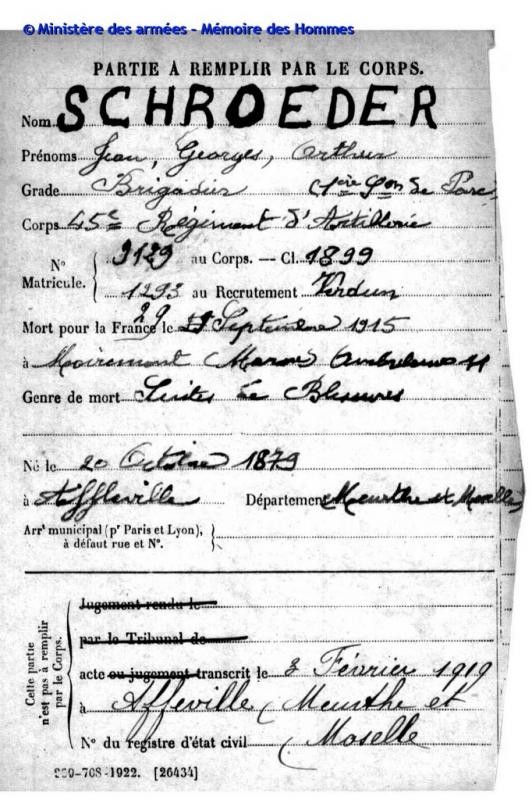 © Ministère des armées - Mémoire des Hommes
PARTIE À REMPLIR PAR LE CORPS.
Nom SCHROEDER
Prénoms Jean, Georges, Arthur
Grade Brigadier (1ère Son de Parc)
Corps 45e Régiment d'Artillerie
N° Matricule. { 3129 au Corps. — Cl. 1899
1293 au Recrutement Verdun
Mort pour la France le 29 Septembre 1915
à Moiremont Marne Ambulance 11
Genre de mort Suites de Blessures
Né le 20 Octobre 1879
à Affleville Département Meurthe et Moselle
Arrt municipal (pr Paris et Lyon), à défaut rue et N°.
Cette partie n'est pas à remplir par le Corps.
Jugement rendu le
par le Tribunal de
acte ou jugement transcrit le 3 Février 1919
à Affleville (Meurthe et
N° du registre d'état civil Moselle
-708-1922. [26434]